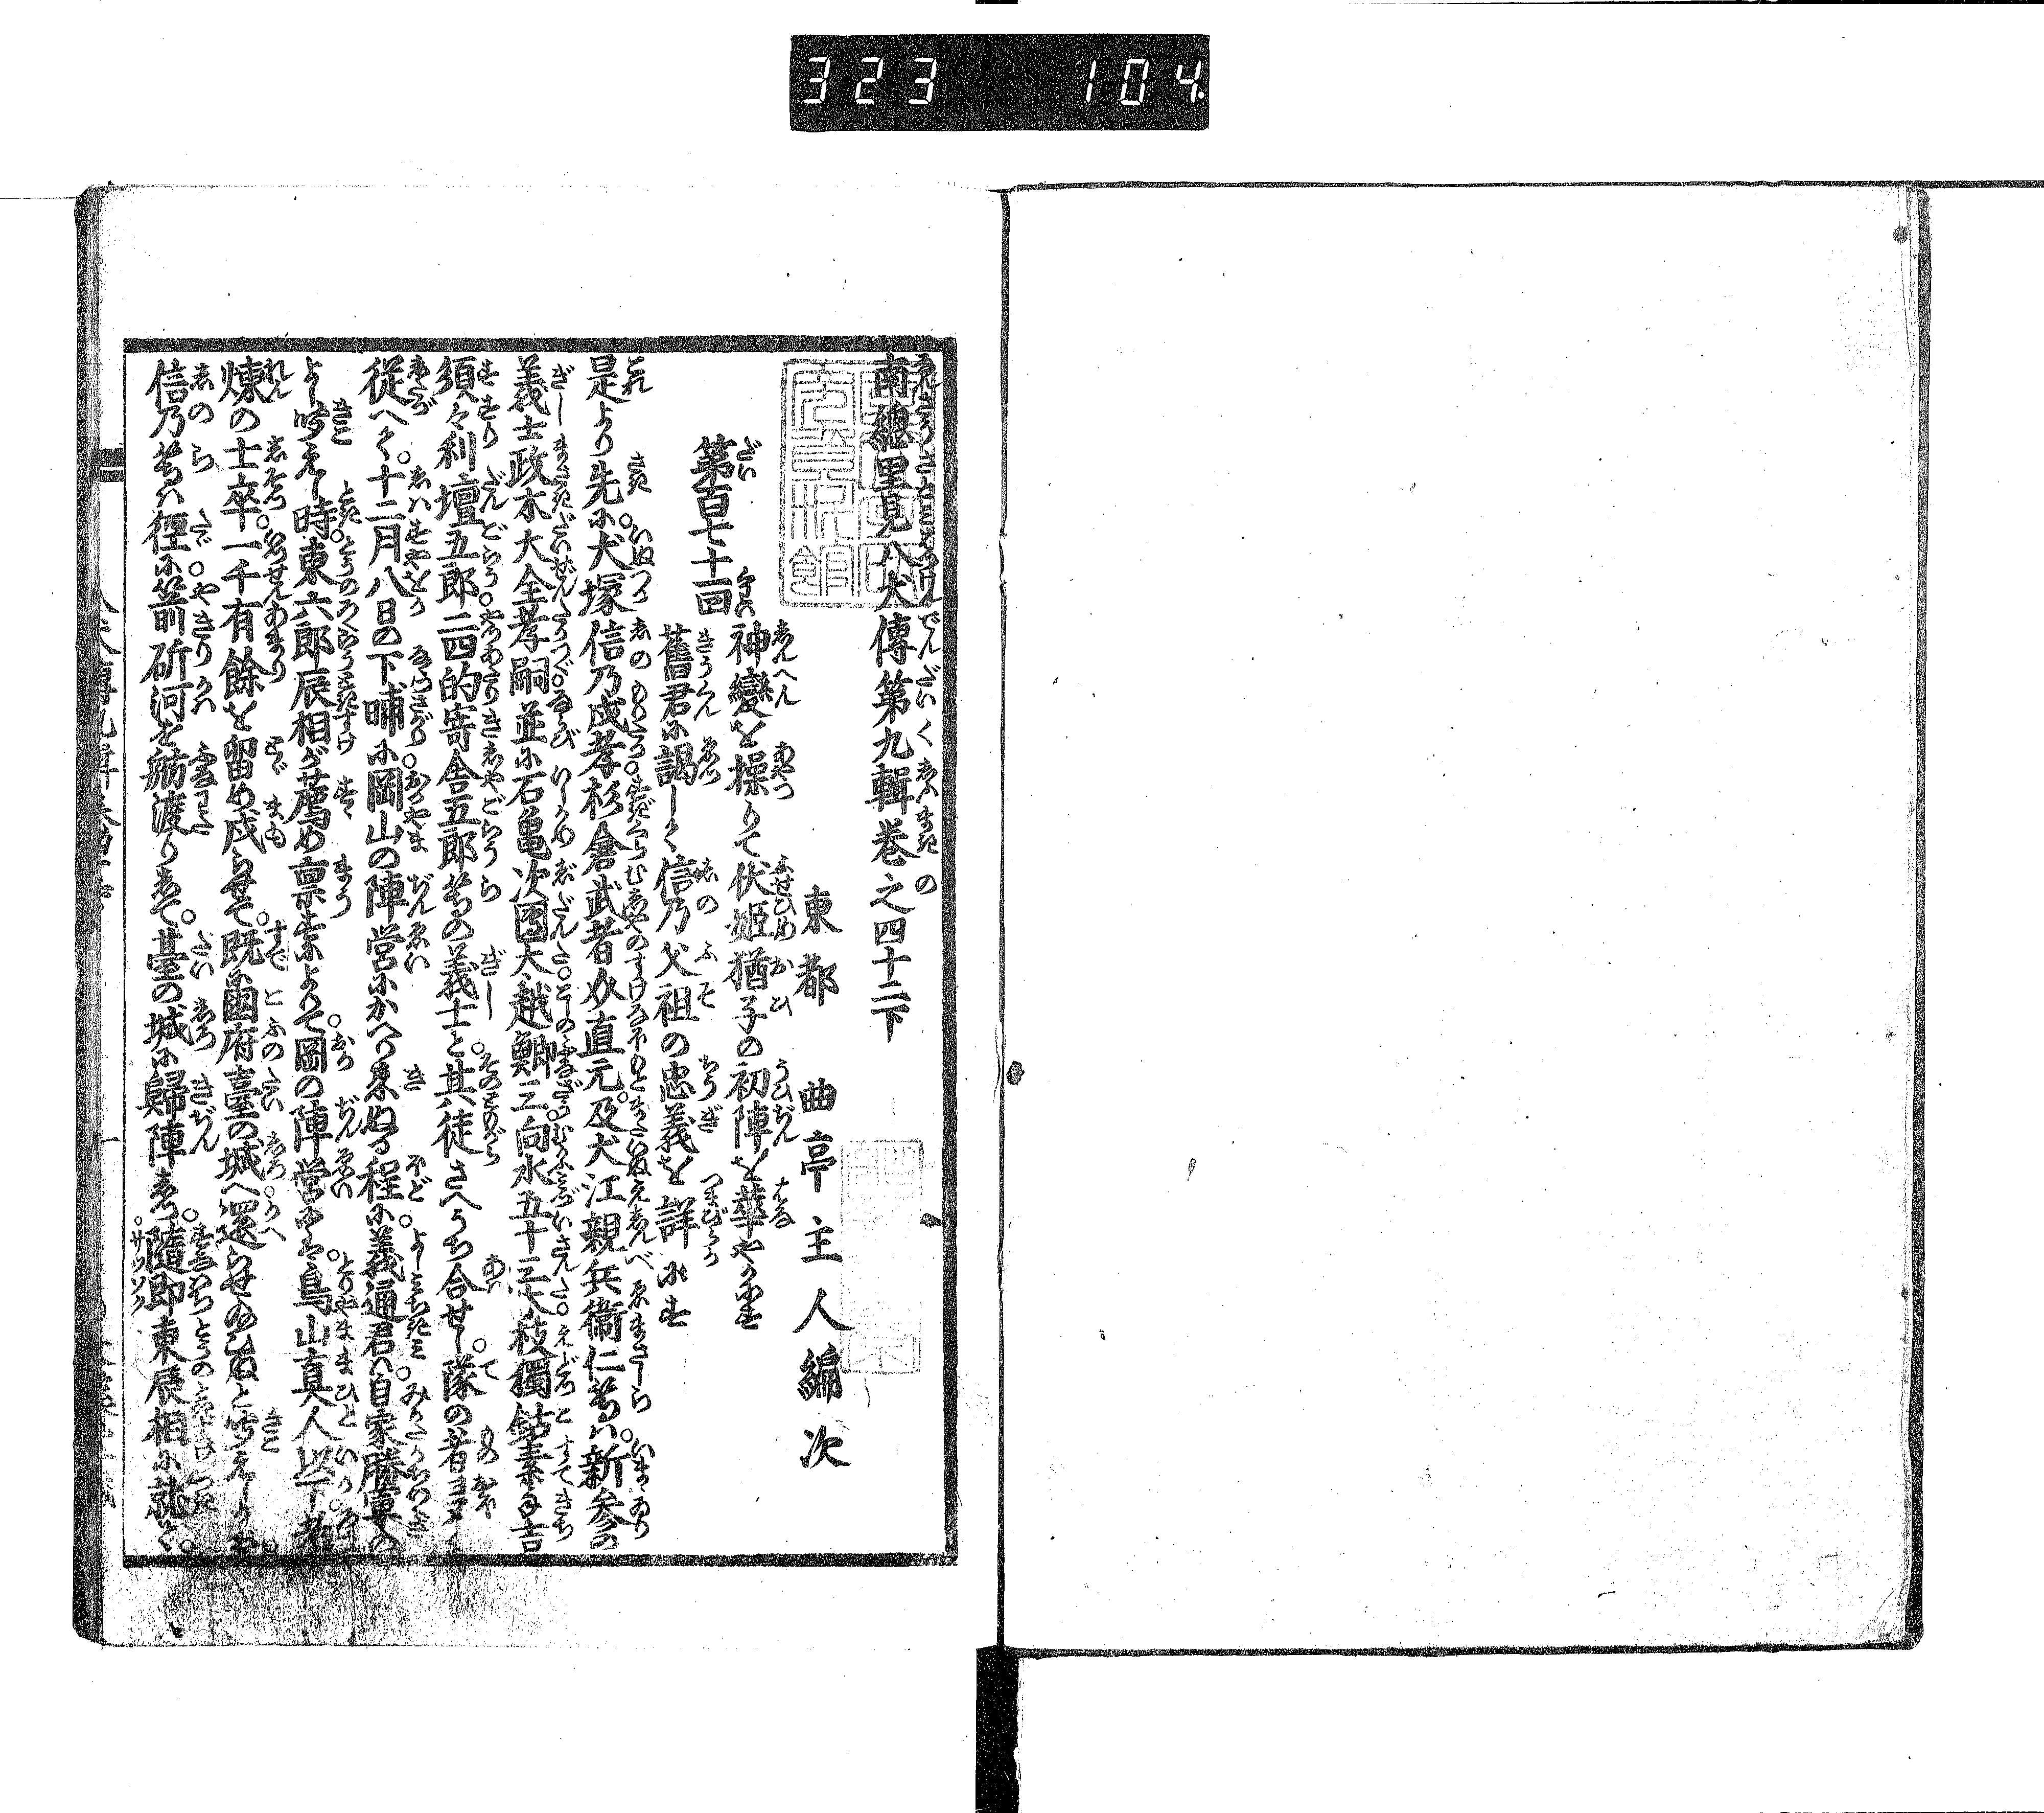 323 104
南總里見八犬傳第九輯巻之四十二下
東都 曲亭主人編次
第百七十一回
神變を操りて伏姫猶子の初陣を華やかにす
舊君に謁して信乃父祖の忠義を詳にす
是より先に。犬塚信乃戍孝杉倉武者助直元。及犬江親兵衞仁等ハ。新参の
義士政木大全孝嗣並に石亀次團太越鯽三向水五十三太枝獨鈷素手吉
須々利壇五郎二四的寄舎五郎等の義士と。其徒さへうち合せし。隊の者
従へて。十二月八日の下晡に岡山の陣営にかへり来ぬる程に。義通君ハ自家勝軍の
よし聞えし時。東六郎辰相が薦め禀すによりて岡の陣営にハ。鳥山真人以下老
煉の士卒一千有餘を留め戍らせて。既に國府臺の城へ還らせ給ひぬと聞えしかバ
信乃等ハ徑に箭斫河を舫渡りして。臺の城に歸陣しつ。隨即東辰相に就て。